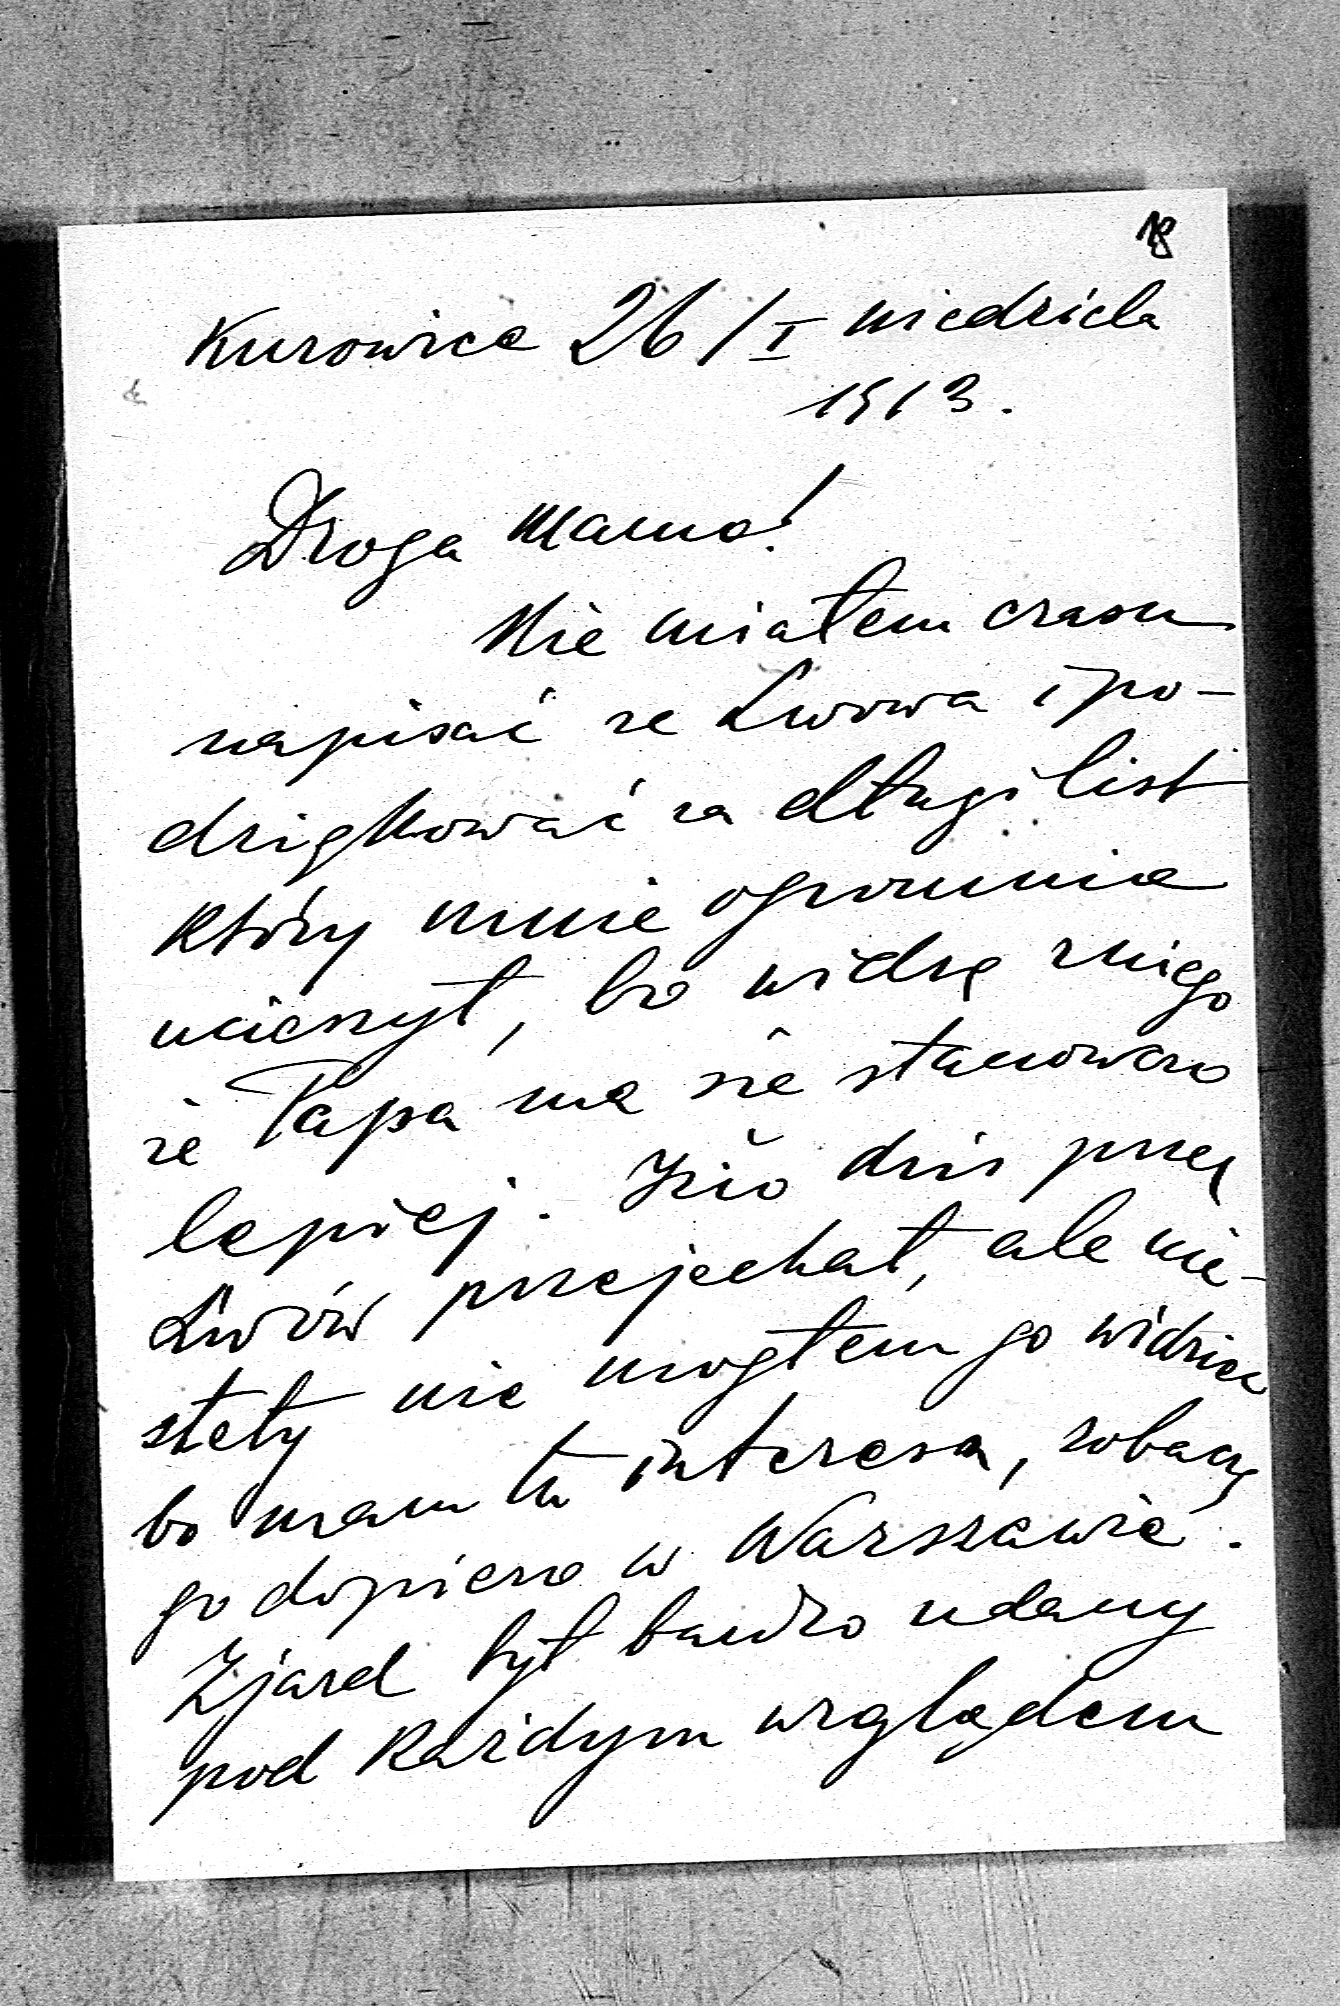 18
Kurowice 26/I niedziela
1913.
Droga Mamo!
Nie miałem czasu
napisać ze Lwowa i po-
dziękować za długi list
który mnie ogromnie
ucieszył, bo widzę z niego
że Papa ma się stanowczo
lepiej. Józio dziś przez
Lwów przejechał, ale nie-
stety nie mogłem go widzieć
bo mam tu interesa, zobaczę
go dopiero w Warszawie.
Zjazd był bardzo udany
pod każdym względem